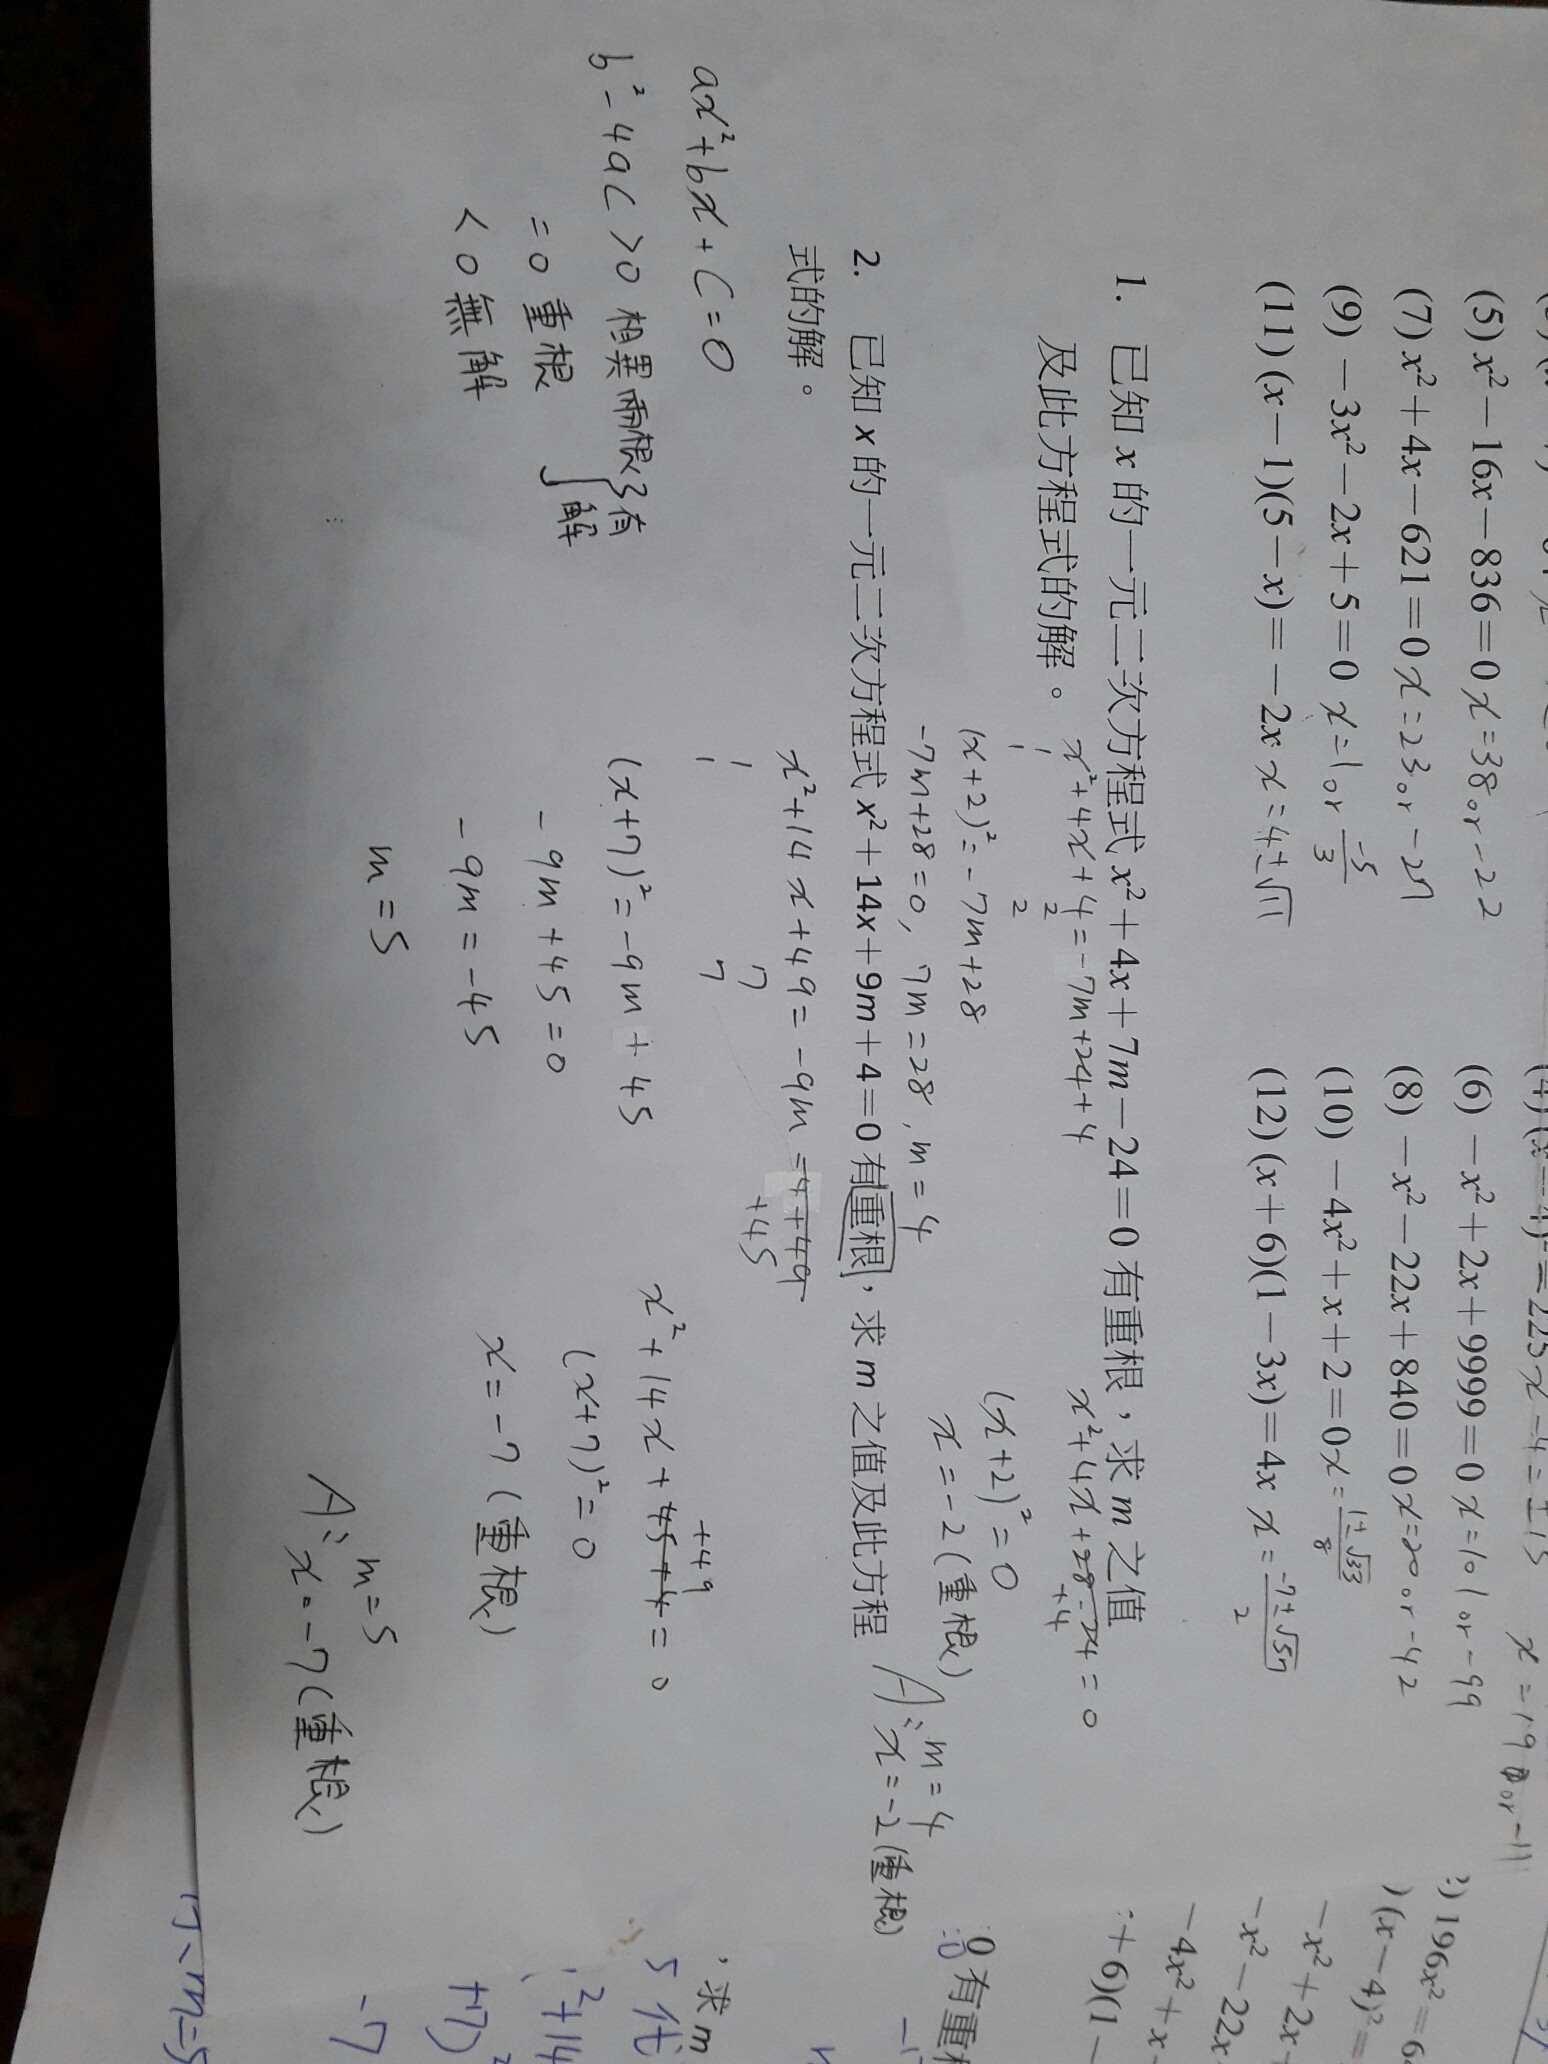 (5) x²－16x－836＝0 x=38 or -22
(6) －x²＋2x＋9999＝0 x=101 or -99
(7) x²＋4x－621＝0 x=23 or -27
(8) －x²－22x＋840＝0 x=20 or -42
(9) －3x²－2x＋5＝0 x=1 or -5/3
(10) －4x²＋x＋2＝0 x=(1±√33)/8
(11) (x－1)(5－x)＝－2x x=4±√11
(12) (x＋6)(1－3x)＝4x x=(-7±√57)/2
x=19 or -11
1. 已知 x 的一元二次方程式 x²＋4x＋7m－24＝0 有重根，求 m 之值
及此方程式的解。
x²+4x+4=-7m+24+4
1 2
1 2
(x+2)²=-7m+28
-7m+28=0, 7m=28, m=4
x²+4x+28-24=0
+4
(x+2)²=0
x=-2(重根)
A: m=4
x=-2(重根)
2. 已知 x 的一元二次方程式 x²＋14x＋9m＋4＝0 有重根，求 m 之值及此方程
式的解。
ax²+bx+c=0
b²-4ac>0 相異兩根
=0 重根
有解
<0 無解
x²+14x+49=-9m-4+49
+45
1 7
1 7
(x+7)²=-9m+45
-9m+45=0
-9m=-45
m=5
+49
x²+14x+45+4=0
(x+7)²=0
x=-7(重根)
A: m=5
x=-7(重根)
196x²＝
(x－4)²＝
－x²＋2x
－x²－22x
－4x²＋x
＋6)(1－
0 有重
，求 m
5代
²+14
+7)²
-7
m=5